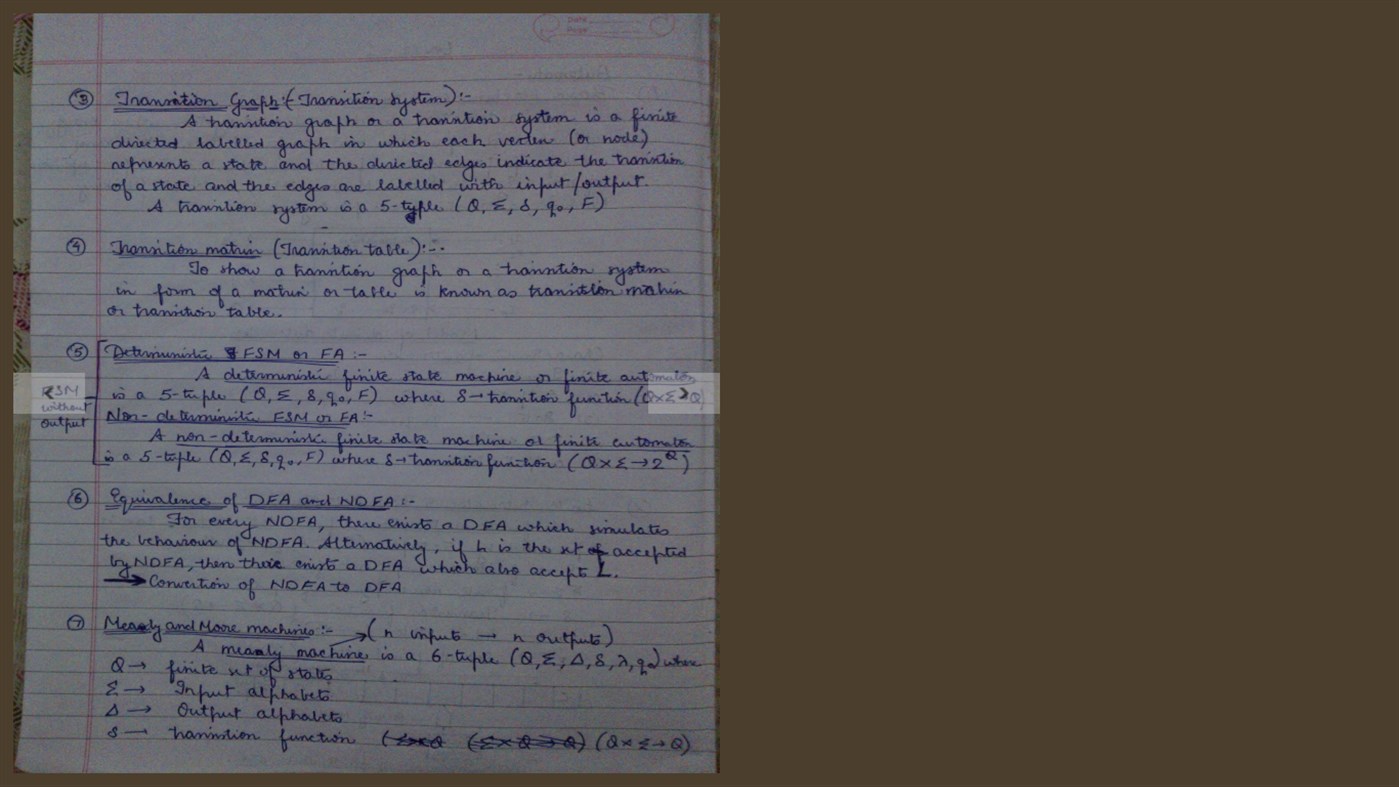 Date
Page
③ Transition Graph :- (Transition system) :-
A transition graph or a transition system is a finite
directed labelled graph in which each vertex (or node)
represents a state and the directed edges indicate the transition
of a state and the edges are labelled with input/output.
A transition system is a 5-tuple (Q, Σ, δ, q₀, F)
④ Transition matrix (Transition table) :-
To show a transition graph or a transition system
in form of a matrix or table is known as transition matrix
or transition table.
⑤ Deterministic FSM or FA :-
A deterministic finite state machine or finite automaton
is a 5-tuple (Q, Σ, δ, q₀, F) where δ → transition function (Q×Σ→Q)
FSM without output
Non-deterministic FSM or FA :-
A non-deterministic finite state machine or finite automaton
is a 5-tuple (Q, Σ, δ, q₀, F) where δ → transition function (Q×Σ→2^Q)
⑥ Equivalence of DFA and NDFA :-
For every NDFA, there exists a DFA which simulates
the behaviour of NDFA. Alternatively, if L is the set of accepted
by NDFA, then there exists a DFA which also accept L.
→ Convertion of NDFA to DFA
⑦ Mealy and Moore machines :- (n inputs → n outputs)
A mealy machine is a 6-tuple (Q, Σ, Δ, δ, λ, q₀) where
Q → finite set of states
Σ → Input alphabets
Δ → Output alphabets
δ → transition function (Σ×Q (Σ×Q→Q) (Q×Σ→Q)